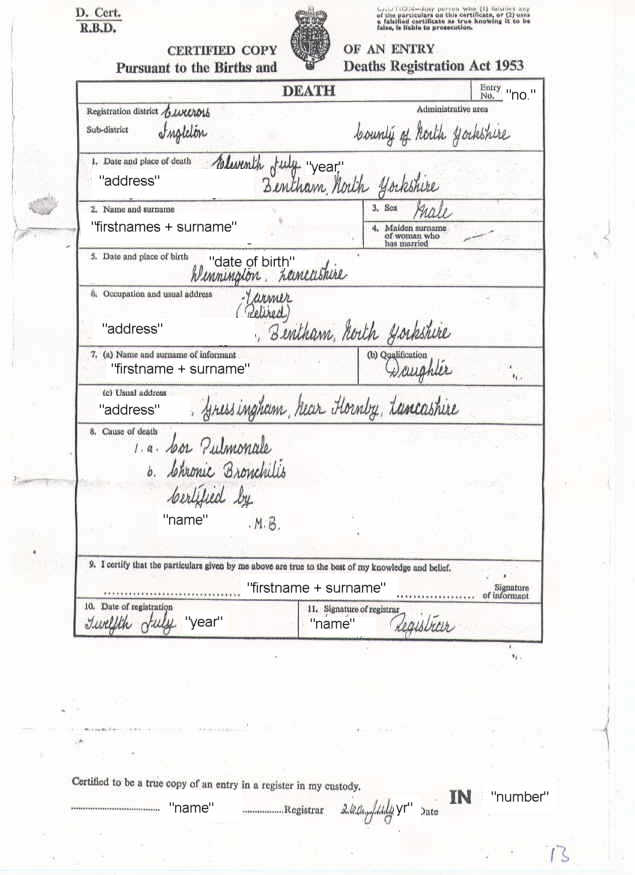 D. Cert.
R.B.D.
CAUTION—Any person who (1) falsifies any
of the particulars on this certificate, or (2) uses
a falsified certificate as true knowing it to be
false, is liable to prosecution.
CERTIFIED COPY OF AN ENTRY
Pursuant to the Births and Deaths Registration Act 1953
DEATH
Entry No. "no."
Registration district
Administrative area
Sub-district Ingleton
County of North Yorkshire
1. Date and place of death Eleventh July "year"
"address" Bentham, North Yorkshire
2. Name and surname
"firstnames + surname"
3. Sex Male
4. Maiden surname
of woman who
has married
5. Date and place of birth "date of birth"
Wennington, Lancashire
6. Occupation and usual address Farmer
(Retired)
"address" Bentham, North Yorkshire
7. (a) Name and surname of informant
"firstname + surname"
(b) Qualification
Daughter
(c) Usual address
"address" Gressingham, Near Hornby, Lancashire
8. Cause of death
1. a. Cor Pulmonale
b. Chronic Bronchitis
Certified by
"name" M.B.
9. I certify that the particulars given by me above are true to the best of my knowledge and belief.
"firstname + surname" Signature
of informant
10. Date of registration
Twelfth July "year"
11. Signature of registrar
"name" Registrar
Certified to be a true copy of an entry in a register in my custody.
"name" Registrar July yr" Date
IN "number"
13